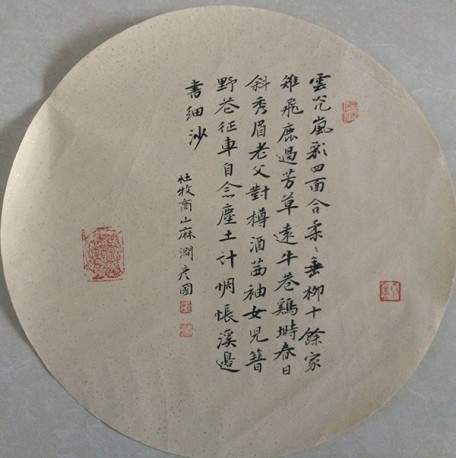 雲光嵐彩四面合柔〻垂柳十餘家
雉飛鹿過芳草遠牛巷鷄塒春日
斜秀眉老父對樽酒茜袖女兒簪
野花征車自念塵土計惆悵溪邊
書細沙
杜牧商山麻澗彦國